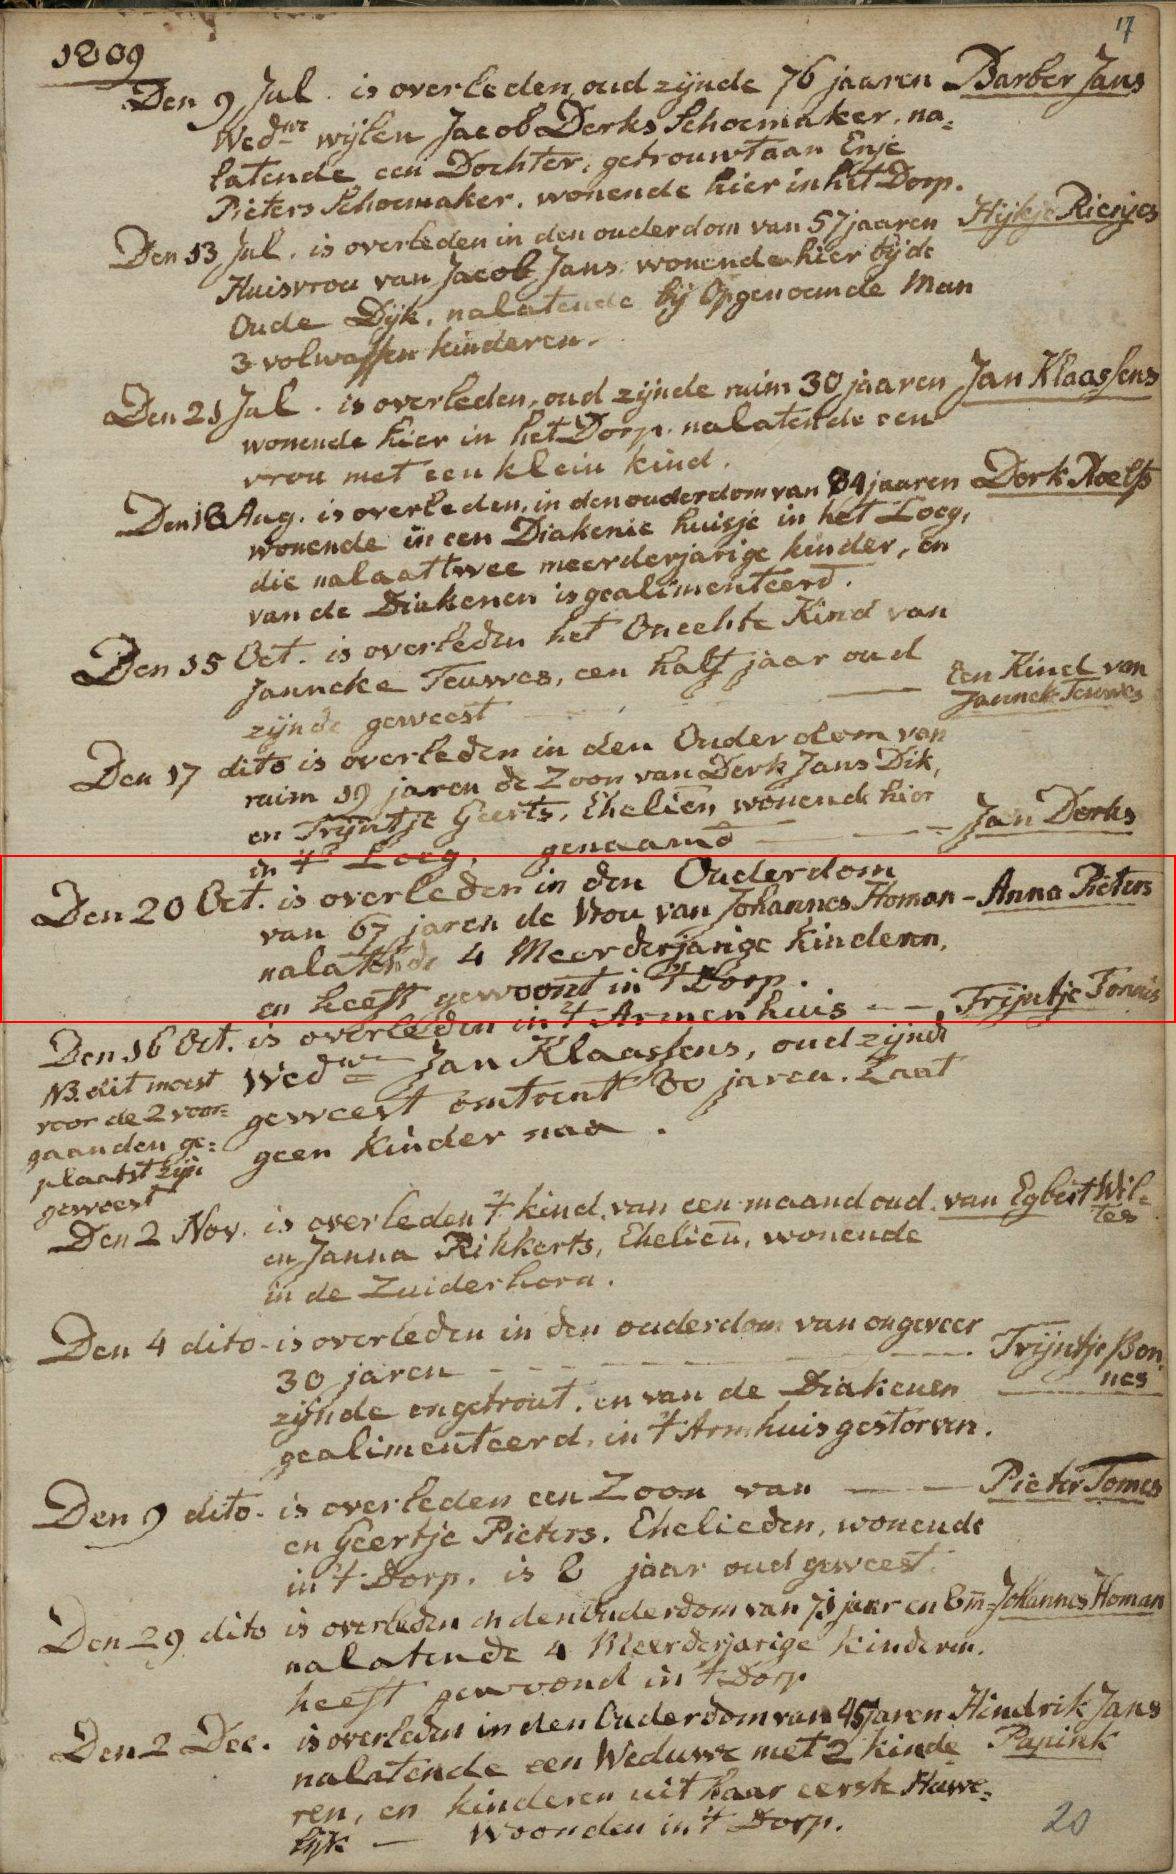 17
1809
Den 9 Jul. is overleden, oud zijnde 76 jaaren Barber Jans
Wedwe wijlen Jacob Derks Schoemaker, na-
latende een Dochter, getrouwt aan Enje
Pieters Schoemaker, wonende hier in het Dorp.
Den 13 Jul. is overleden in den ouderdom van 57 jaaren Hijkje Rienjes
Huisvrou van Jacob Jans wonende hier bij de
Oude Dijk, nalatende bij Opgenoemde Man
3 volwassen kinderen.
Den 21 Jul. is overleden, oud zijnde ruim 30 jaaren Jan Klaassens
wonende hier in het Dorp. nalatende een
vrou met een klein kind.
Den 18 Aug. is overleden, in den ouderdom van 84 jaaren Derk Roelfs
wonende in een Diakenie huisje in het Loeg,
die nalaat twee meerderjarige kinder, en
van de Diakenen is gealimenteerd.
Den 15 Oct. is overleden het Onechte Kind van
Janneke Teuwes, een half jaar oud
zijnde geweest — Een Kind van
Jannek Teuwes
Den 17 dito is overleden in den Ouderdom van
ruim 19 jaren de Zoon van Derk Jans Dik,
en Trijntje Geerts, Ehelien, wonende hier
in 't Loeg, genaamd — Jan Derks
Den 20 Oct. is overleden in den Ouderdom
van 67 jaren de Vrou van Johannes Homan - Anna Pieters
nalatende 4 Meerderjarige kinderen,
en heeft gewoont in 't Dorp.
Den 16 Oct. is overleden in 't Armenhuis — Trijntje Tonnis
Wedwe Jan Klaassens, oud zijnde
geweest omtrent 80 jaren. Laat
geen kinder naa.
NB. dit moest
voor de 2 voor-
gaanden ge-
plaatst zijn
geweest
Den 2 Nov. is overleden 't kind van een maand oud. van Egbert Wil-
tes
en Janna Rikkerts, Ehelien, wonende
in de Zuiderhorn.
Den 4 dito - is overleden in den ouderdom van ongeveer
30 jaren — Trijntje Bon-
nes
zijnde ongetrout, en van de Diakenen
gealimenteerd, in 't Armhuis gestorven.
Den 9 dito. is overleden een Zoon van — Pieter Tomes
en Geertje Pieters. Ehelieden, wonende
in 't Dorp. is 2 jaar oud geweest.
Den 29 dito is overleden in den Ouderdom van 71 jaar en 6 m - Johannes Homan
nalatende 4 Meerderjarige kinderen.
heeft gewoond in 't Dorp
Den 2 Dec. is overleden in den Ouderdom van 45 jaren Hindrik Jans
Papink
nalatende een Weduwe met 2 kinde-
ren, en kinderen uit haar eerste Huwe-
lijk — Woonden in 't Dorp.
20